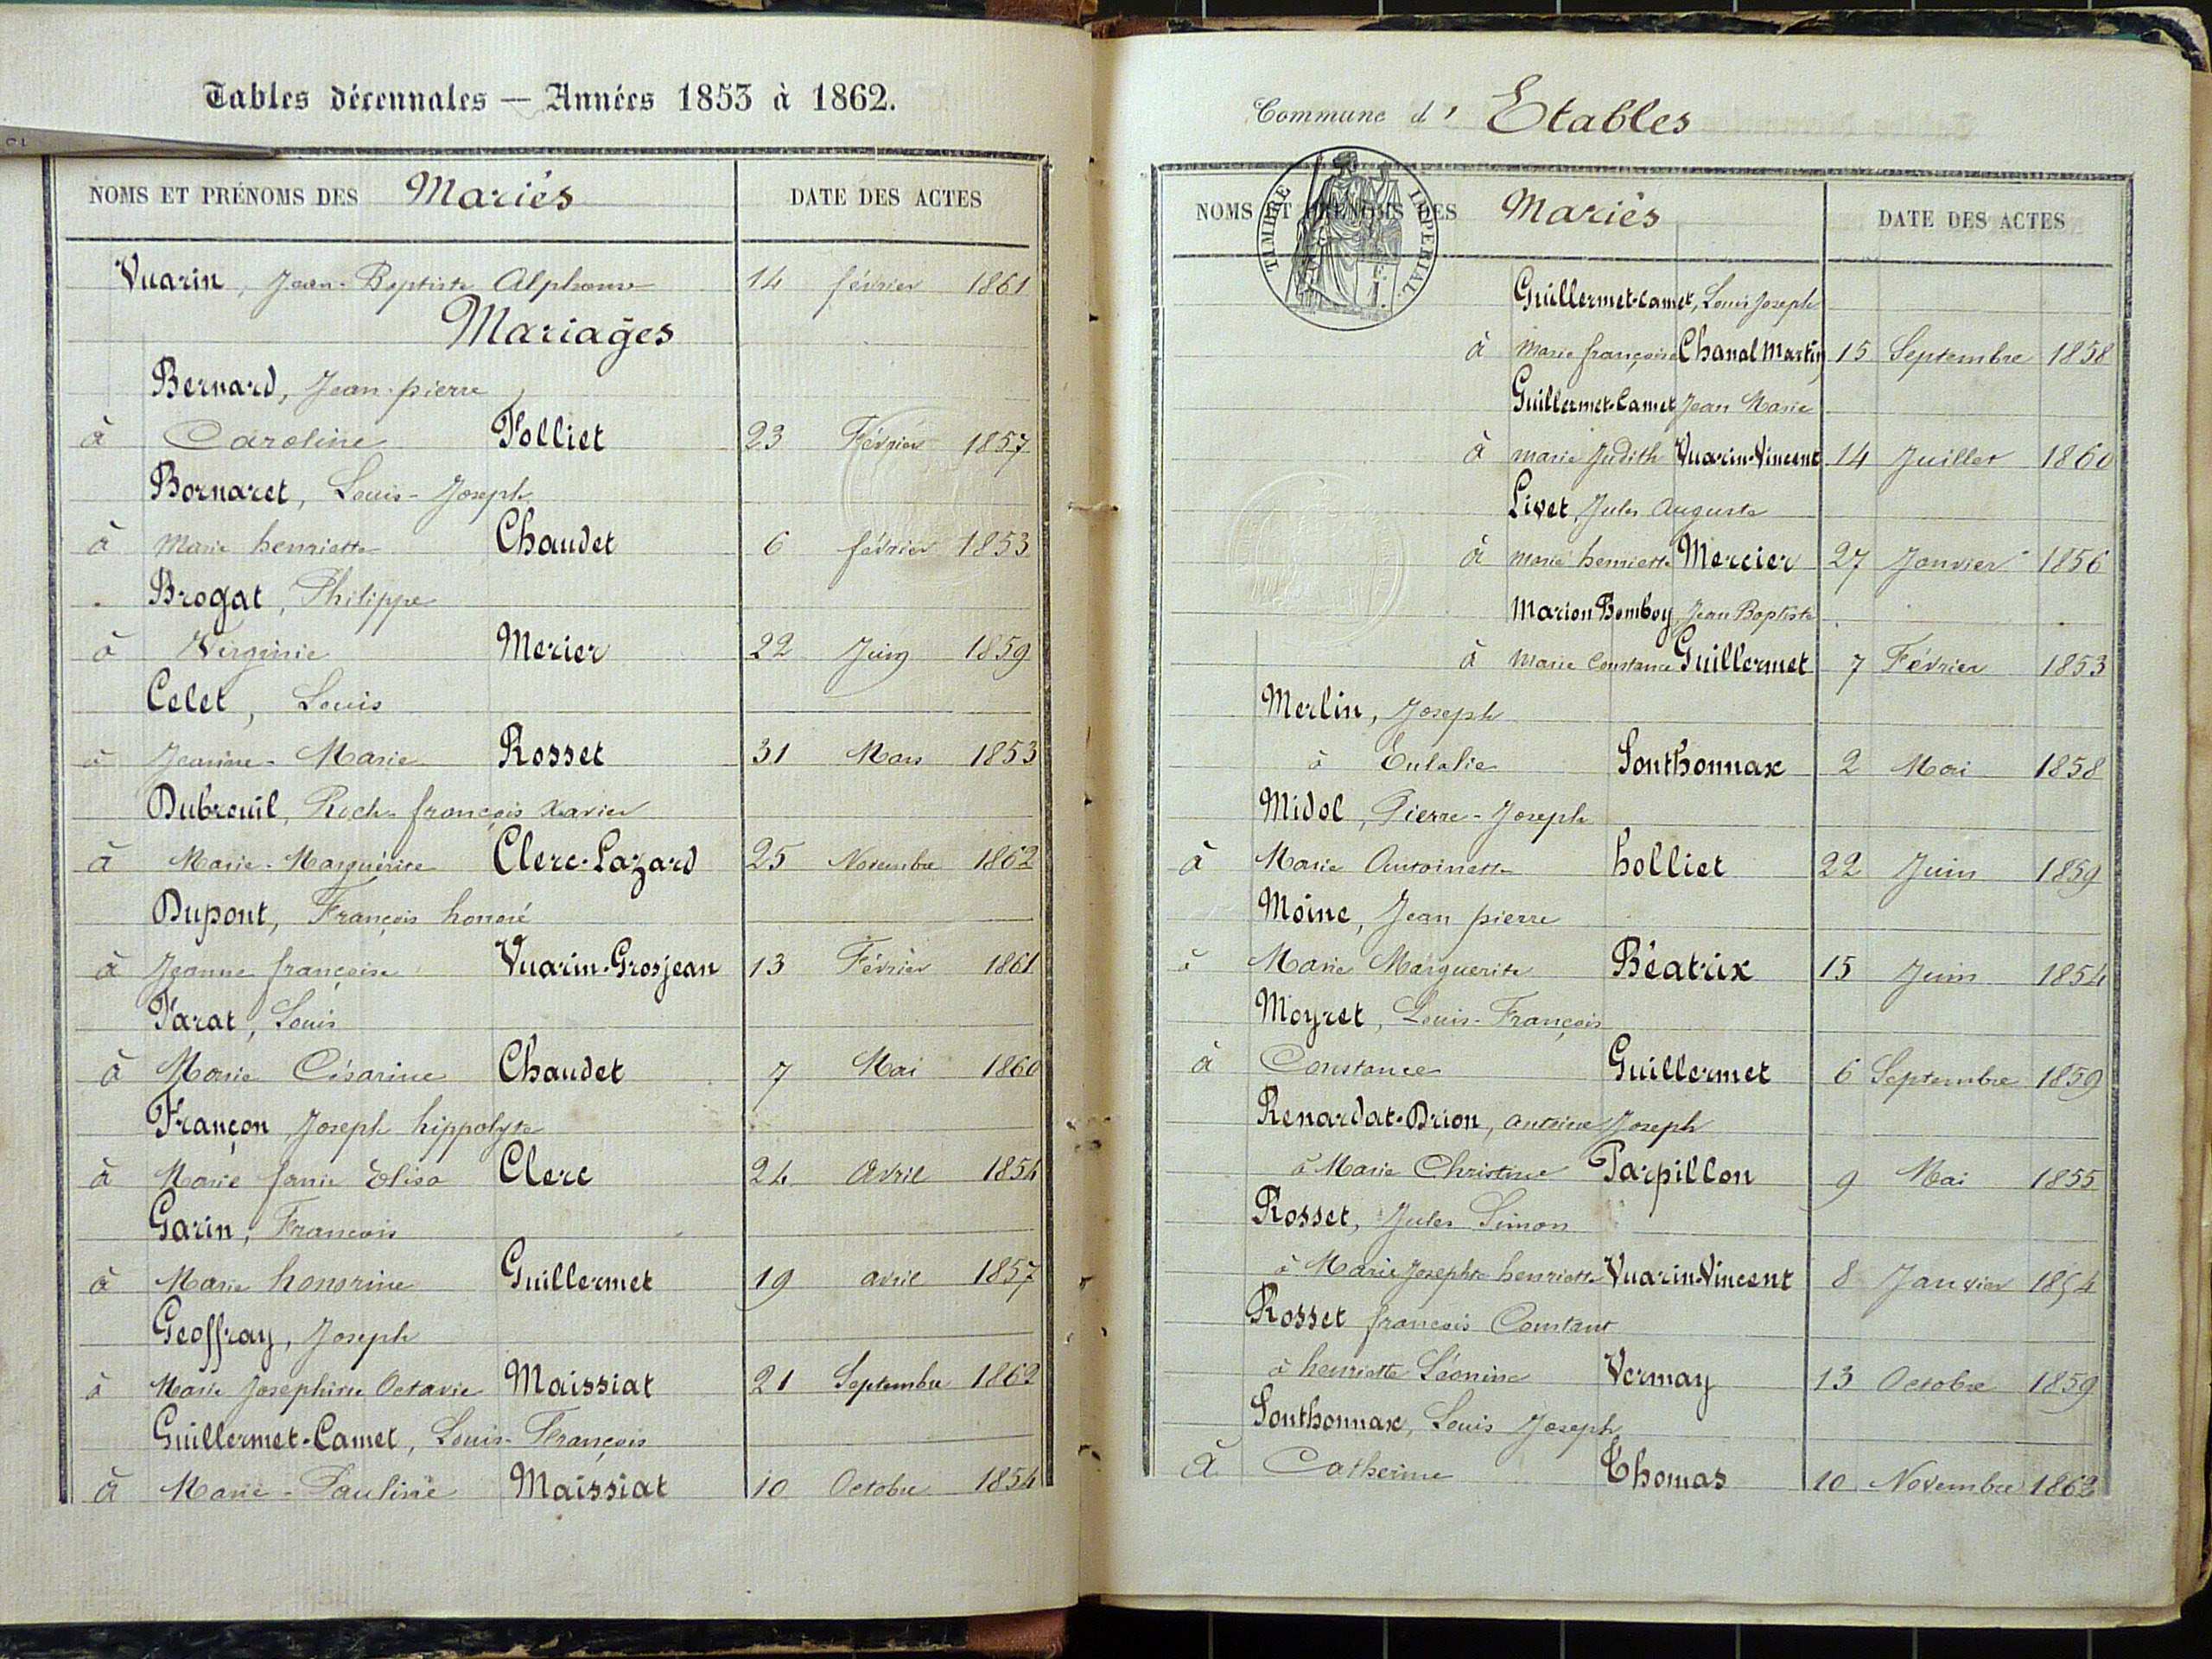 Tables décennales — Années 1853 à 1862.
NOMS ET PRÉNOMS DES Mariés DATE DES ACTES
Vuarin, Jean-Baptiste Alphonse 14 février 1861
Mariages
Bernard, Jean-pierre
à Caroline Folliet 23 Février 1857
Bornaret, Louis-Joseph
à Marie henriette Chaudet 6 février 1853
Brogat, Philippe
à Virginie Merier 22 Juin 1859
Celet, Louis
à Jeanne-Marie Rosset 31 Mars 1853
Dubreuil, Roch françois Xavier
à Marie-Marguérite Clerc-Lazard 25 Novembre 1862
Dupont, François honoré
à Jeanne françoise Vuarin-Grosjean 13 Février 1861
Farat, Louis
à Marie Césarine Chaudet 7 Mai 1860
Françon Joseph hippolyte
à Marie fanie Elisa Clerc 24 avril 1854
Garin, François
à Marie honorine Guillermet 19 avril 1857
Geoffray, Joseph
à Marie Joséphine Octavie Maissiat 21 Septembre 1862
Guillermet-Camet, Louis-François
à Marie-Pauline Maissiat 10 Octobre 1854
Commune d' Etables
TIMBRE IMPERIAL
NOMS ET PRÉNOMS DES Mariés DATE DES ACTES
Guillermet-camet, Louis Joseph
à Marie françoise Chanal Martin 15 Septembre 1858
Guillermet-Camet Jean Marie
à marie Judith Vuarin-Vincent 14 Juillet 1860
Livet, Jules Auguste
à Marie henriette Mercier 27 Janvier 1856
Marion Bomboy, Jean Baptiste
à Marie Constance Guillermet 7 Février 1853
Merlin, Joseph
à Eulalie Sonthonnax 2 Mai 1858
Midol, Pierre-Joseph
à Marie Antoinette holliet 22 Juin 1859
Moine, Jean pierre
à Marie Marguerite Béatrix 15 Juin 1854
Moyret, Louis-François
à Constance Guillermet 6 Septembre 1859
Renardat-Drion, antoine Joseph
à Marie Christine Parpillon 9 Mai 1855
Rosset, Jules Simon
à Marie Josephte henriette Vuarin-Vincent 8 Janvier 1854
Rosset françois Constant
à henriette Léonine Vermay 13 Octobre 1859
Sonthonnax, Louis Joseph
à Catherine Thomas 10 Novembre 1862